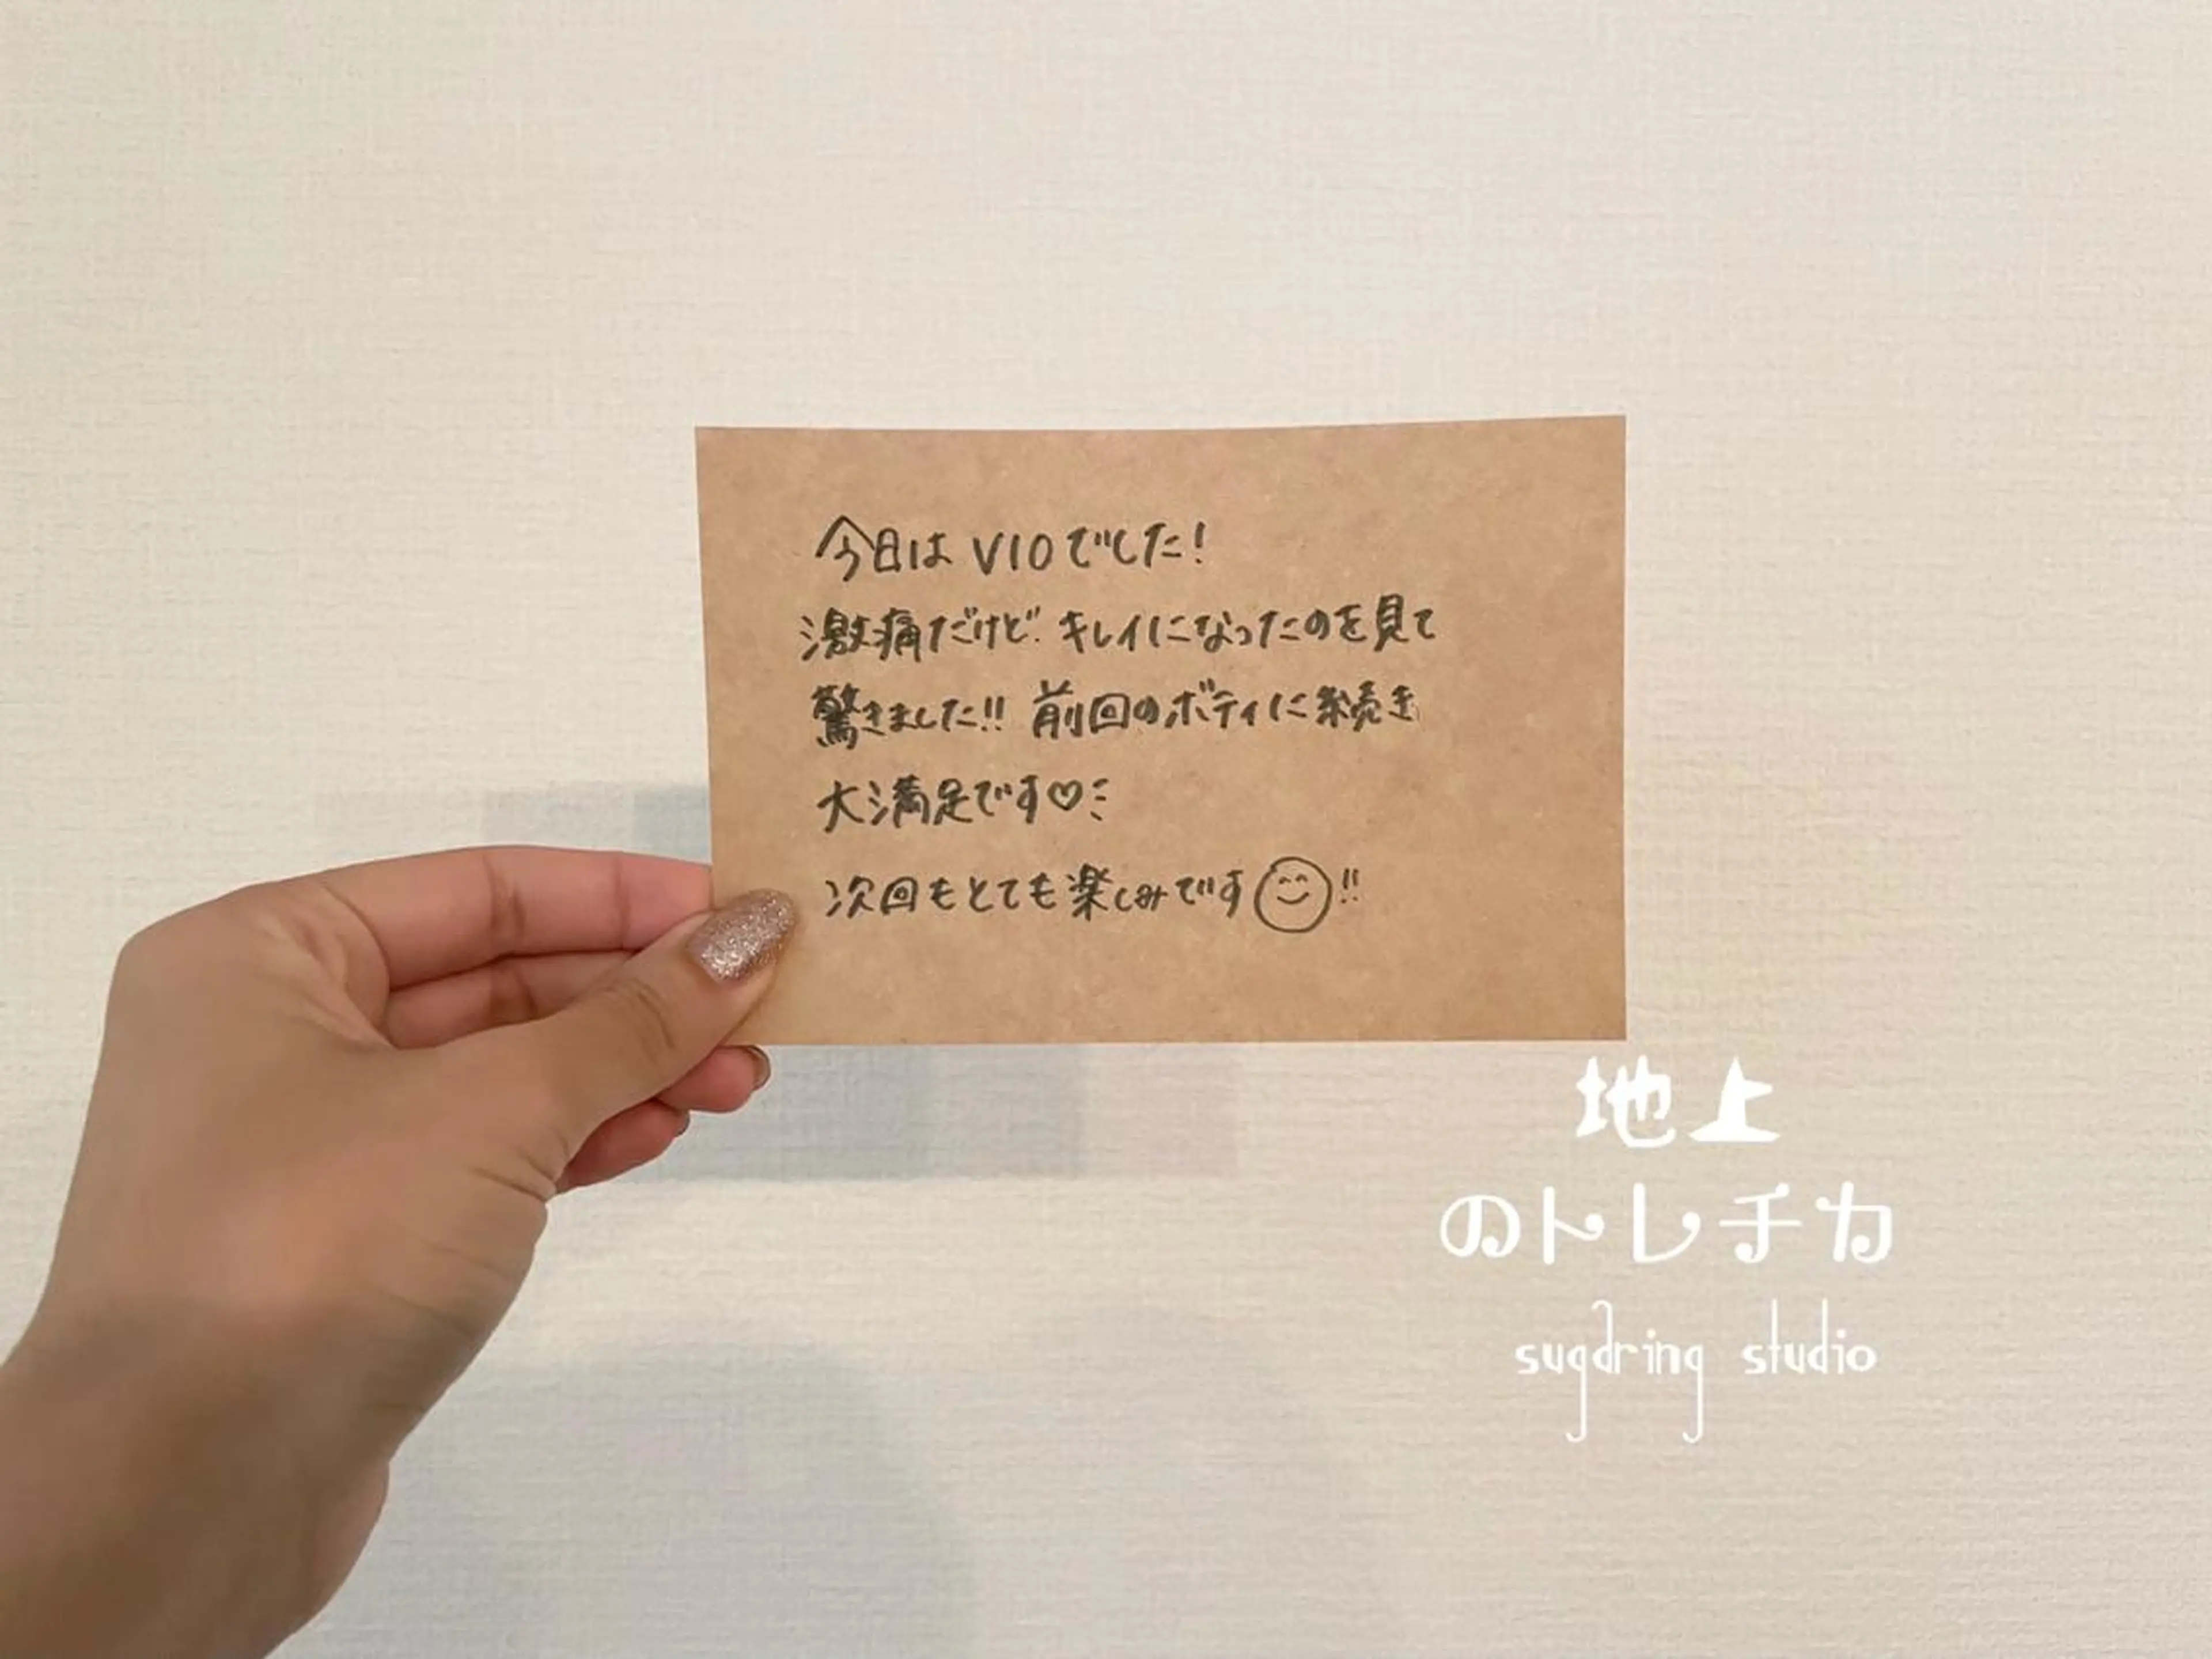 今日はVIOでした!
激痛だけど キレイになったのを見て
驚きました!! 前回のボディに続き
大満足です♡
次回もとても楽しみです☺!!
地上
のトレチカ
sugaring studio